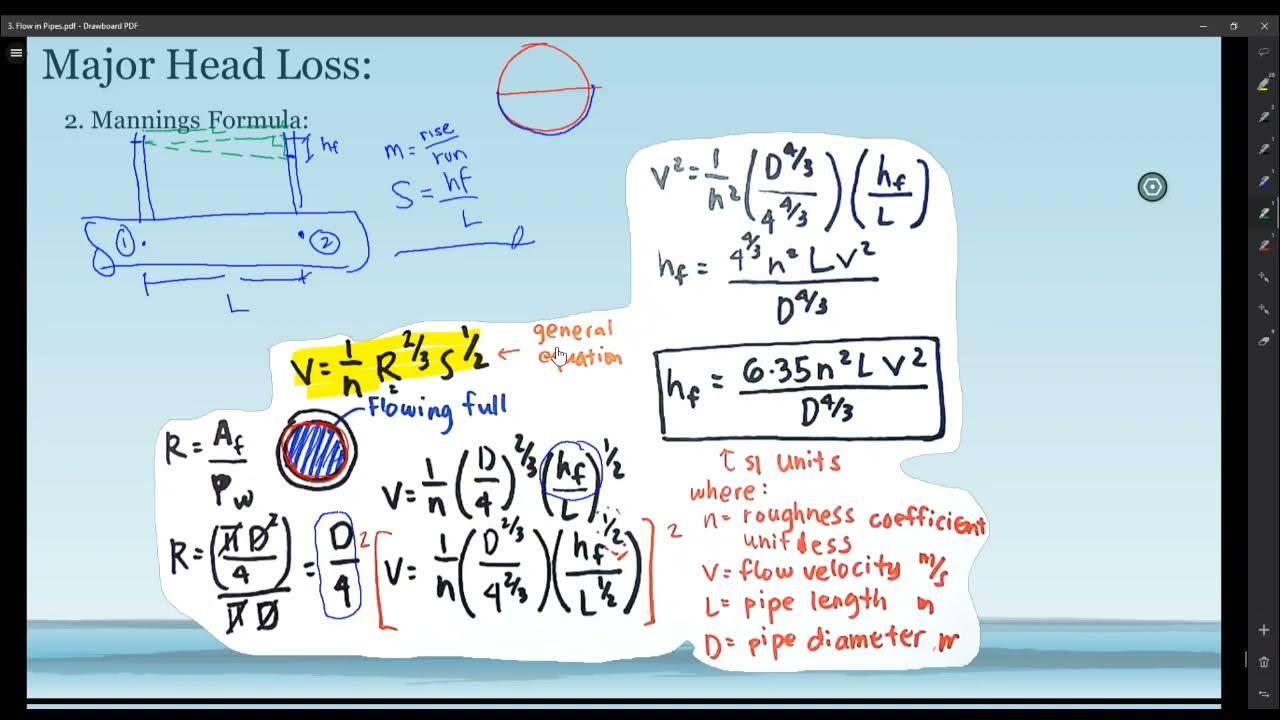 3. Flow in Pipes.pdf - Drawboard PDF
Major Head Loss:
2. Mannings Formula:
hf
m = rise/run
S = hf/L
1
2
L
V = 1/n R^2/3 S^1/2 ← general equation
Flowing full
R = Af/Pw
R = (πD²/4)/πD = D/4
V = 1/n (D/4)^2/3 (hf/L)^1/2
2[V = 1/n (D^2/3/4^2/3)(hf^1/2/L^1/2)]2
V² = 1/n² (D^4/3/4^4/3)(hf/L)
hf = 4^4/3 n² L V²/D^4/3
hf = 6.35n² L V²/D^4/3
↑ SI Units
where:
n = roughness coefficient
unitless
V = flow velocity m/s
L = pipe length m
D = pipe diameter, m